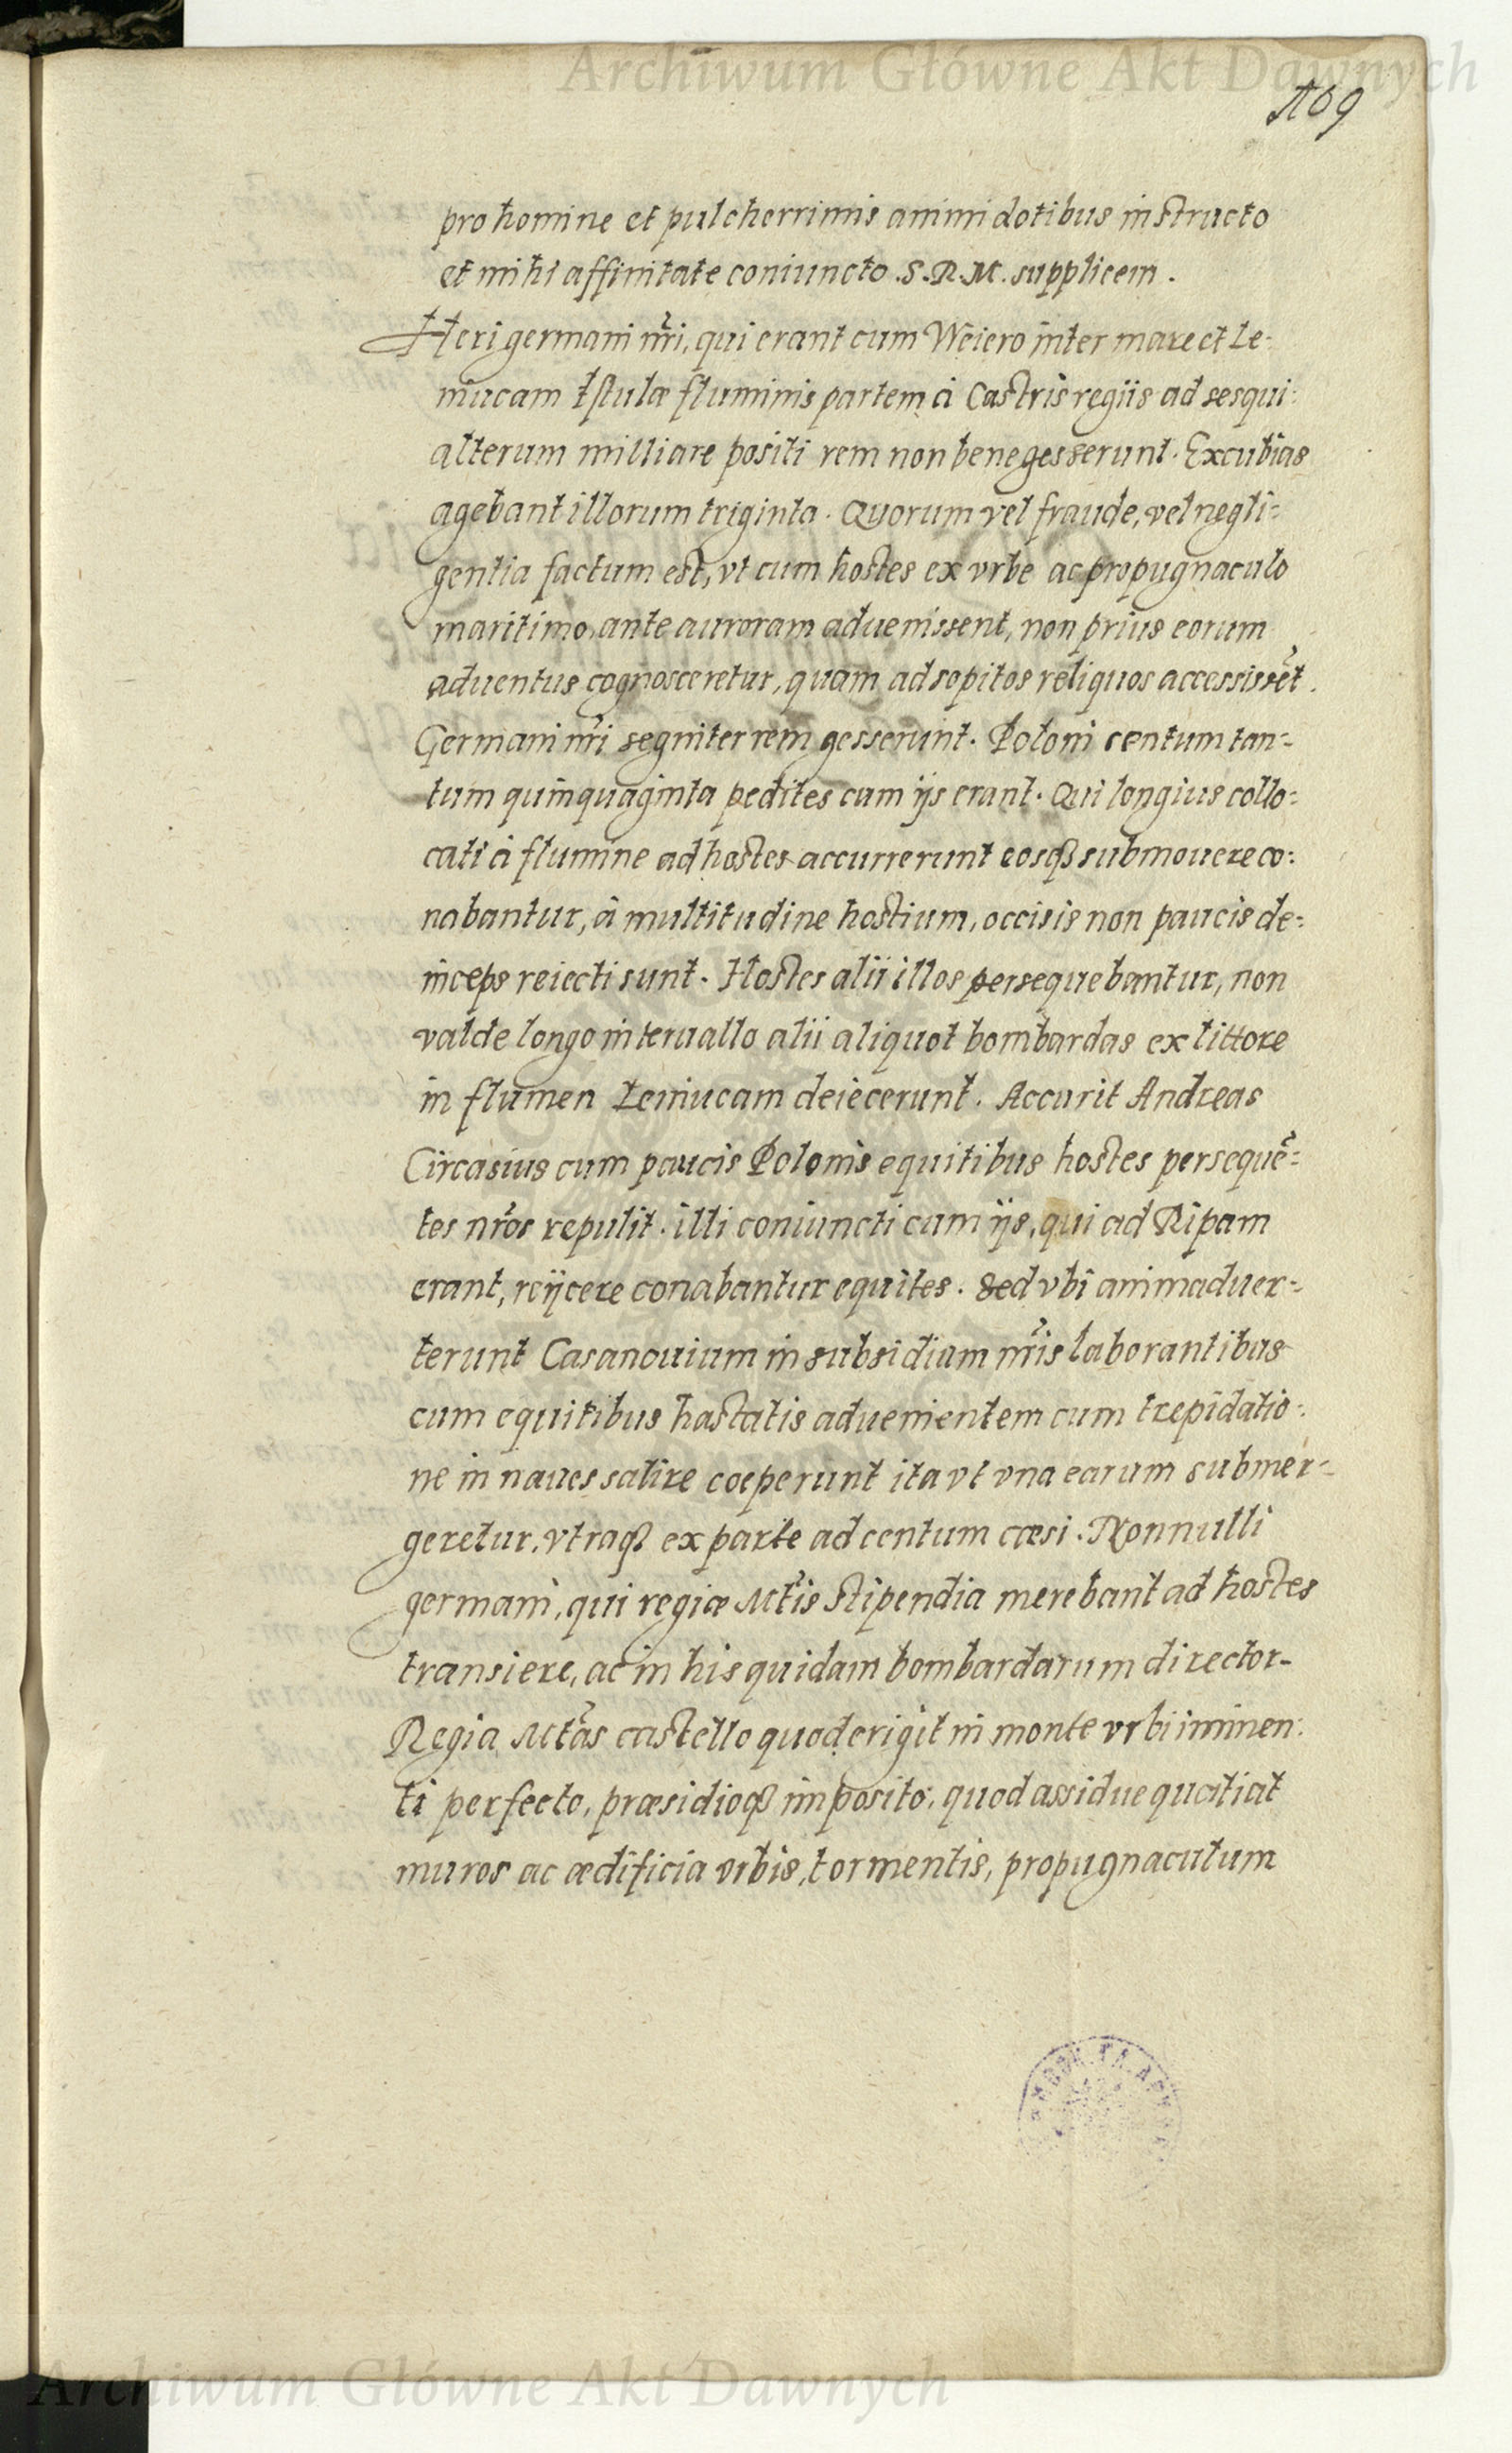 Archiwum Główne Akt Dawnych
109
pro homine et pulcherrimis animi dotibus instructo
et mihi affinitate coniuncto .S.R.M. supplicem.
Heri germani nr̃i, qui erant cum Weiero inter mare et Le-
niucam Istulæ fluminis partem à Castris regiis ad sesqui-
alterum milliare positi rem non bene gesserunt. Excubias
agebant illorum triginta. Quorum vel fraude, vel negli-
gentia factum est, vt cum hostes ex vrbe ac propugnaculo
maritimo, ante auroram aduenissent, non prius eorum
aduentus cognosceretur, quam ad sopitos reliquos accessissẽt.
Germani nr̃i segniter rem gesserunt. Poloni centum tan-
tum quinquaginta pedites cum ijs erant. Qui longius collo-
cati à flumine ad hostes accurrerunt eosqꝫ submouere co-
nabantur, à multitudine hostium, occisis non paucis de-
inceps reiecti sunt. Hostes alii illos persequebantur, non
valde longo interuallo alii aliquot bombardas ex littore
in flumen Leniucam deiecerunt. Accurit Andreas
Circasius cum paucis Polonis equitibus hostes persequẽ-
tes nr̃os repulit. illi coniuncti cum ijs, qui ad Ripam
erant, reijcere conabantur equites. Sed vbi animaduer-
terunt Casanouium in subsidium nr̃is laborantibus
cum equitibus hastatis aduenientem cum trepidatio-
ne in naues salire coeperunt ita vt vna earum submer-
geretur, vtraqꝫ ex parte ad centum cæsi. Nonnulli
germani, qui regiæ Mt̃is stipendia merebant ad hostes
transiere, ac in his quidam bombardarum director-
Regia Mt̃as castello quod erigit in monte vrbi iminen-
ti perfecto, præsidioqꝫ imposito, quod assidue quatiat
muros ac ædificia vrbis, tormentis, propugnaculum
Archiwum Główne Akt Dawnych